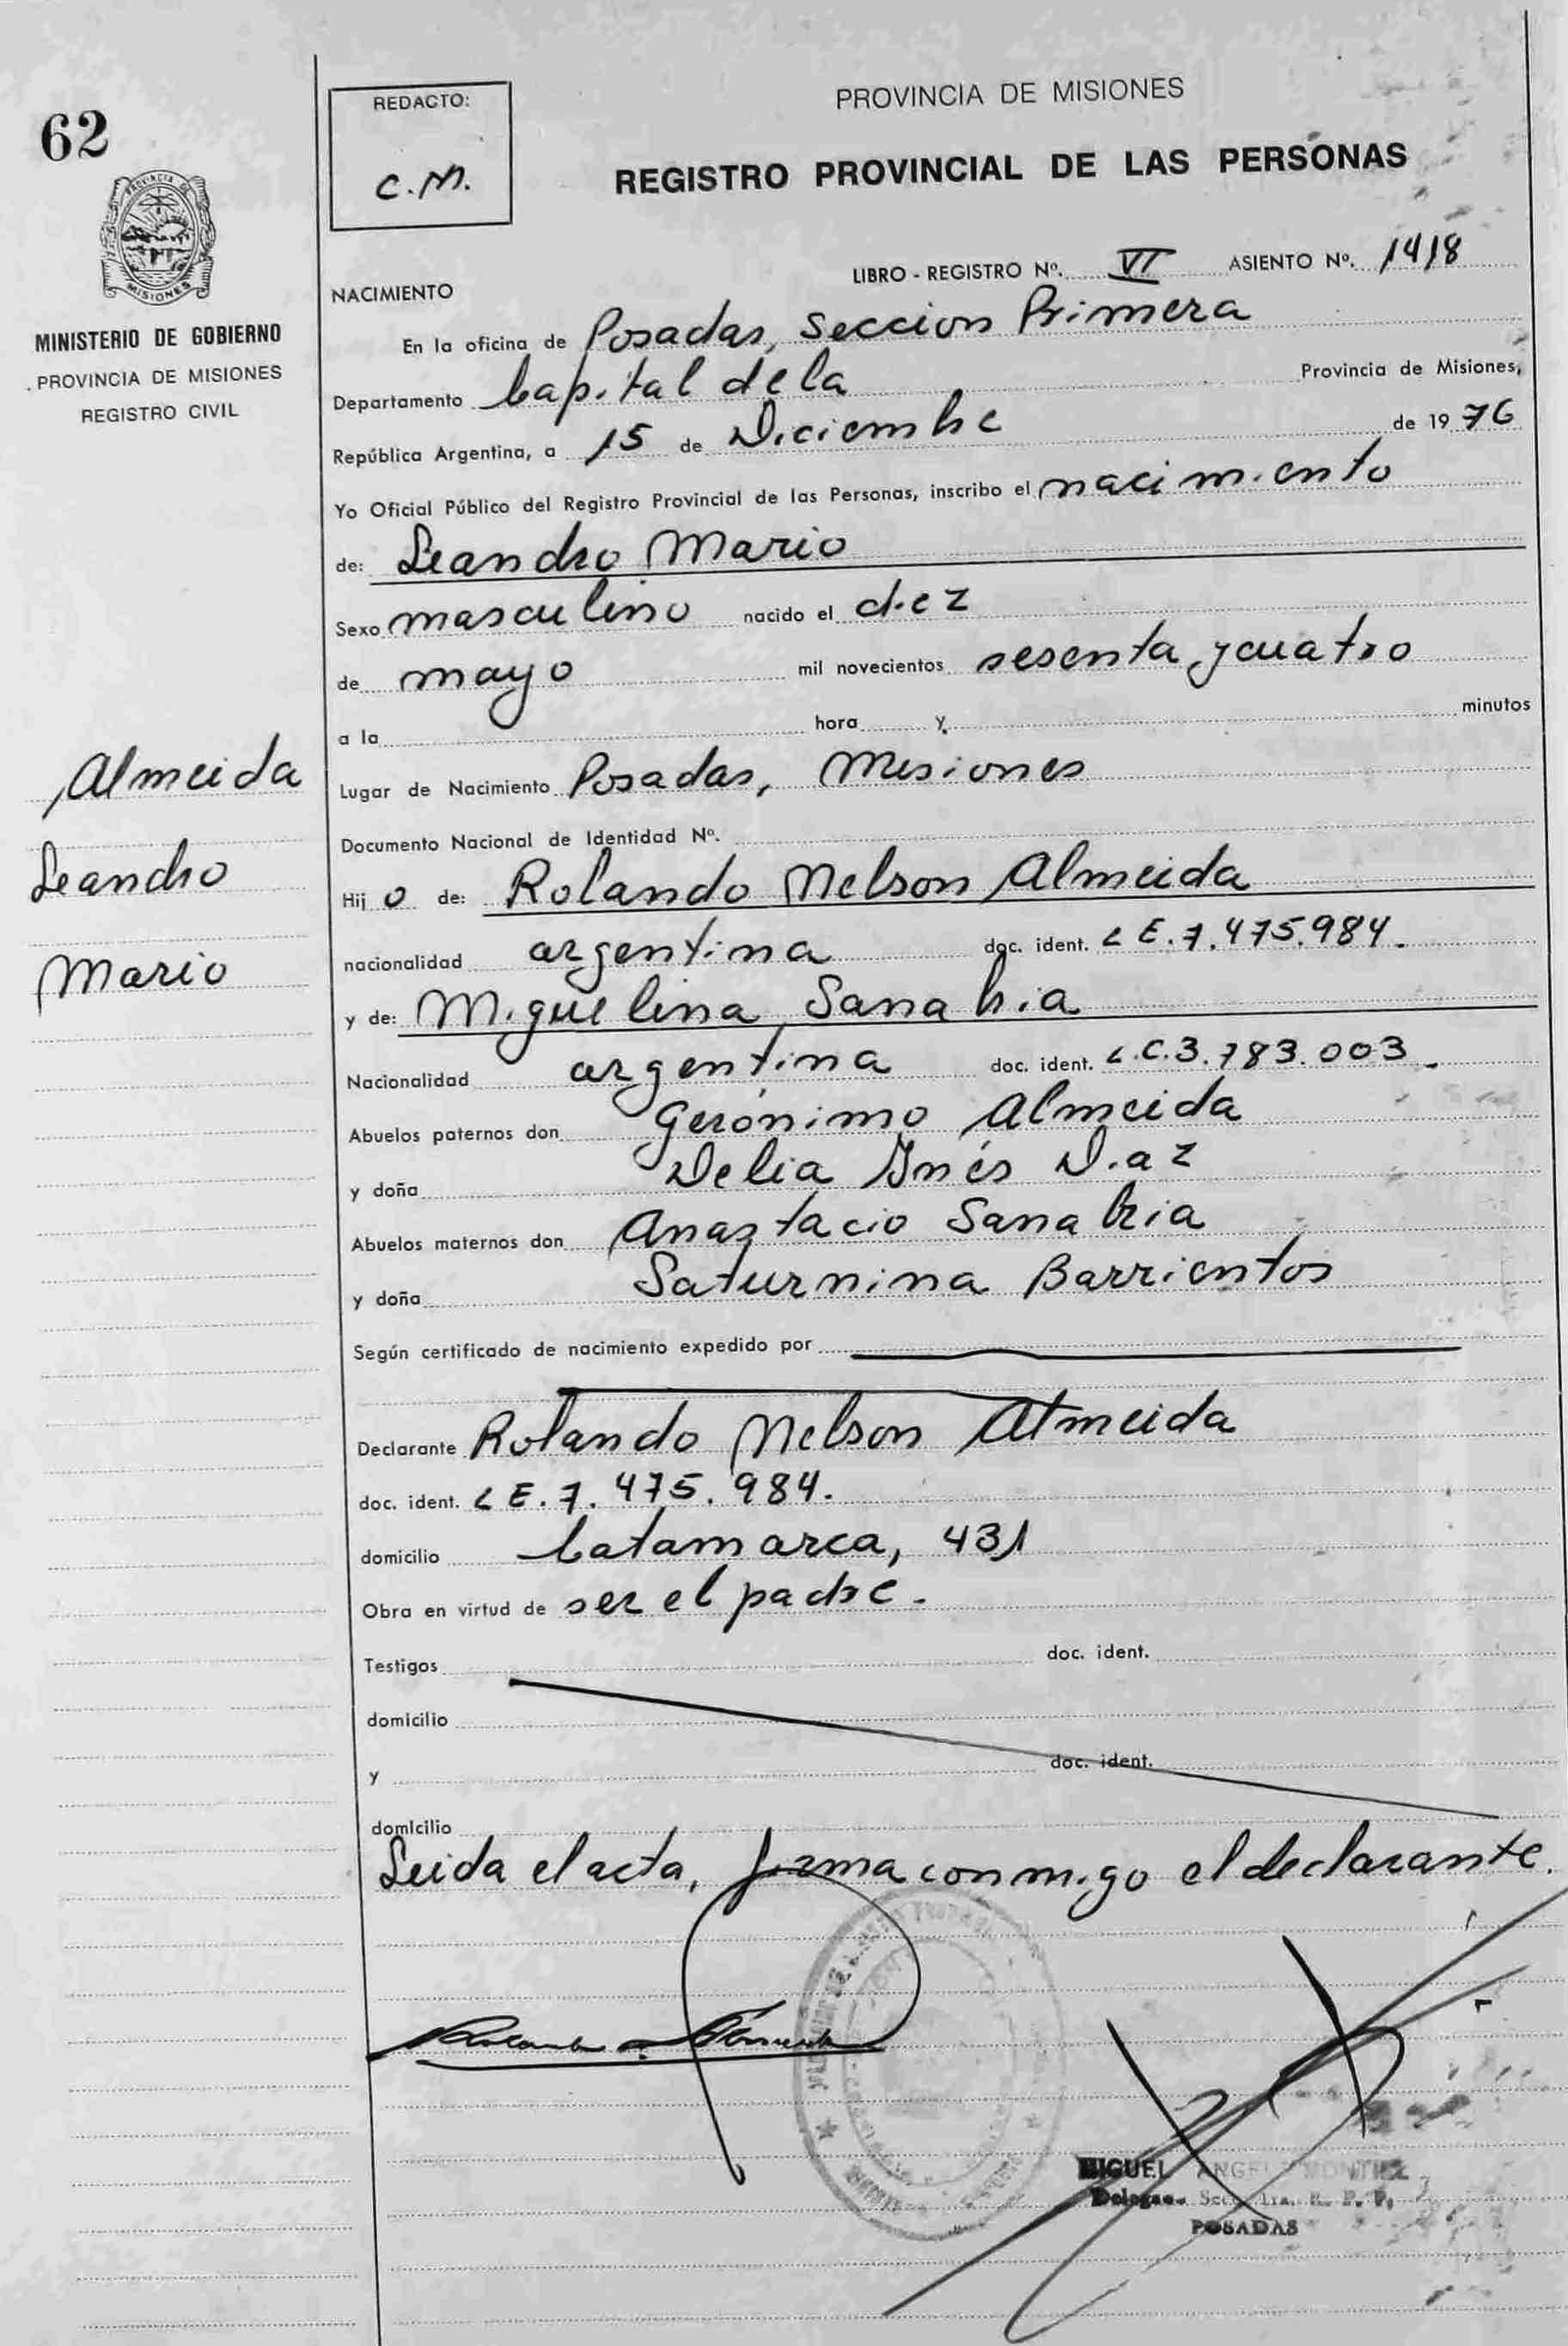 62
REDACTO:
C.M.
PROVINCIA DE MISIONES
REGISTRO PROVINCIAL DE LAS PERSONAS
PROVINCIA DE
MISIONES
MINISTERIO DE GOBIERNO
PROVINCIA DE MISIONES
REGISTRO CIVIL
LIBRO - REGISTRO Nº. VI ASIENTO Nº. 1418
NACIMIENTO
En la oficina de Posadas, Seccion Primera
Departamento Capital de la Provincia de Misiones,
República Argentina, a 15 de Diciembre de 1976
Yo Oficial Público del Registro Provincial de las Personas, inscribo el nacimiento
de: Leandro Mario
Sexo masculino nacido el diez
de mayo mil novecientos sesenta y cuatro
a la hora y minutos
Almeida
Leandro
Mario
Lugar de Nacimiento Posadas, Misiones
Documento Nacional de Identidad Nº.
Hijo de: Rolando Nelson Almeida
nacionalidad argentina doc. ident. L E. 7.475.984.
y de: Miguelina Sanabria
Nacionalidad argentina doc. ident. L.C. 3.783.003.
Abuelos paternos don Gerónimo Almeida
y doña Delia Inés Diaz
Abuelos maternos don Anaztacio Sanabria
y doña Saturnina Barrientos
Según certificado de nacimiento expedido por
Declarante Rolando Nelson Almeida
doc. ident. L E. 7. 475. 984.
domicilio Catamarca, 431
Obra en virtud de ser el padre.
Testigos doc. ident.
domicilio
y doc. ident.
domicilio
Leida el acta, firma conmigo el declarante.
MIGUEL ANGEL MONTIEL
POSADAS